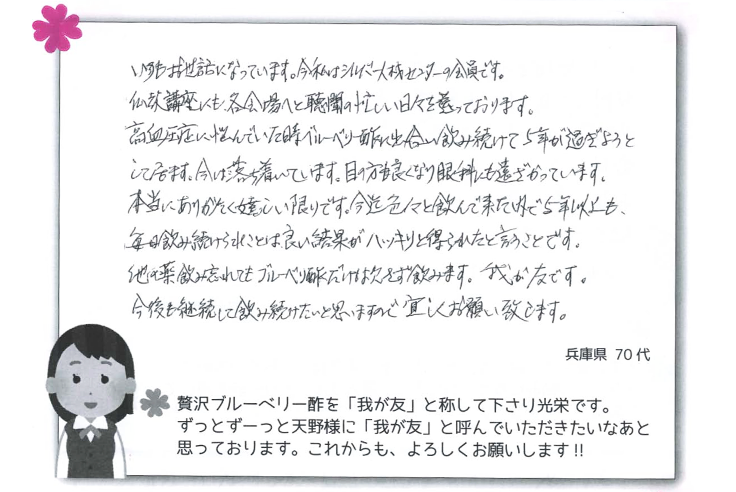 いつもお世話になっています。今私はシルバー人材センターの会員です。
仏教講座にも、各会場へと聴聞の忙しい日々を送っております。
高血圧症に悩んでいた時ブルーベリー酢に出合い飲み続けて5年が過ぎようと
して居ます。今は落ち着いています。目の方も良くなり眼科にも遠ざかっています。
本当にありがたく嬉しい限りです。今迄色々と飲んで来た内で5年以上も、
毎日飲み続けられたことは良い結果がハッキリと得られたと言うことです。
他の薬飲み忘れてもブルーベリー酢だけは欠さず飲みます。我が友です。
今後も継続して飲み続けたいと思いますので宜しくお願い致します。
兵庫県 70代
贅沢ブルーベリー酢を「我が友」と称して下さり光栄です。
ずっとずーっと天野様に「我が友」と呼んでいただきたいなあと
思っております。これからも、よろしくお願いします!!